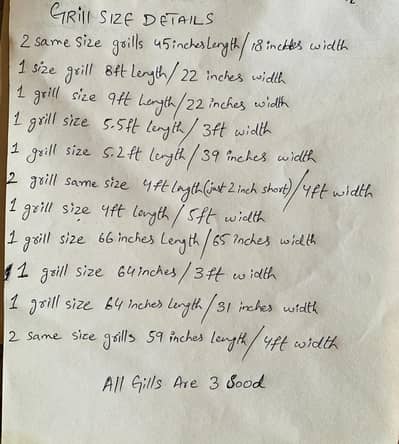 GRill SIZE DETAILS
2 same size grills 45 inches Length/18 inches width
1 size grill 8ft Length/22 inches width
1 grill size 9ft Length/22 inches width
1 grill size 5.5ft Length/3ft width
1 grill size 5.2ft Length/39 inches width
2 grill same size 4ft length (just 2 inch short)/4ft width
1 grill size 4ft Length/5ft width
1 grill size 66 inches Length/65 inches width
1 grill size 64 inches/3ft width
1 grill size 64 inches Length/31 inches width
2 same size grills 59 inches length/4ft width
All Gills Are 3 Sood